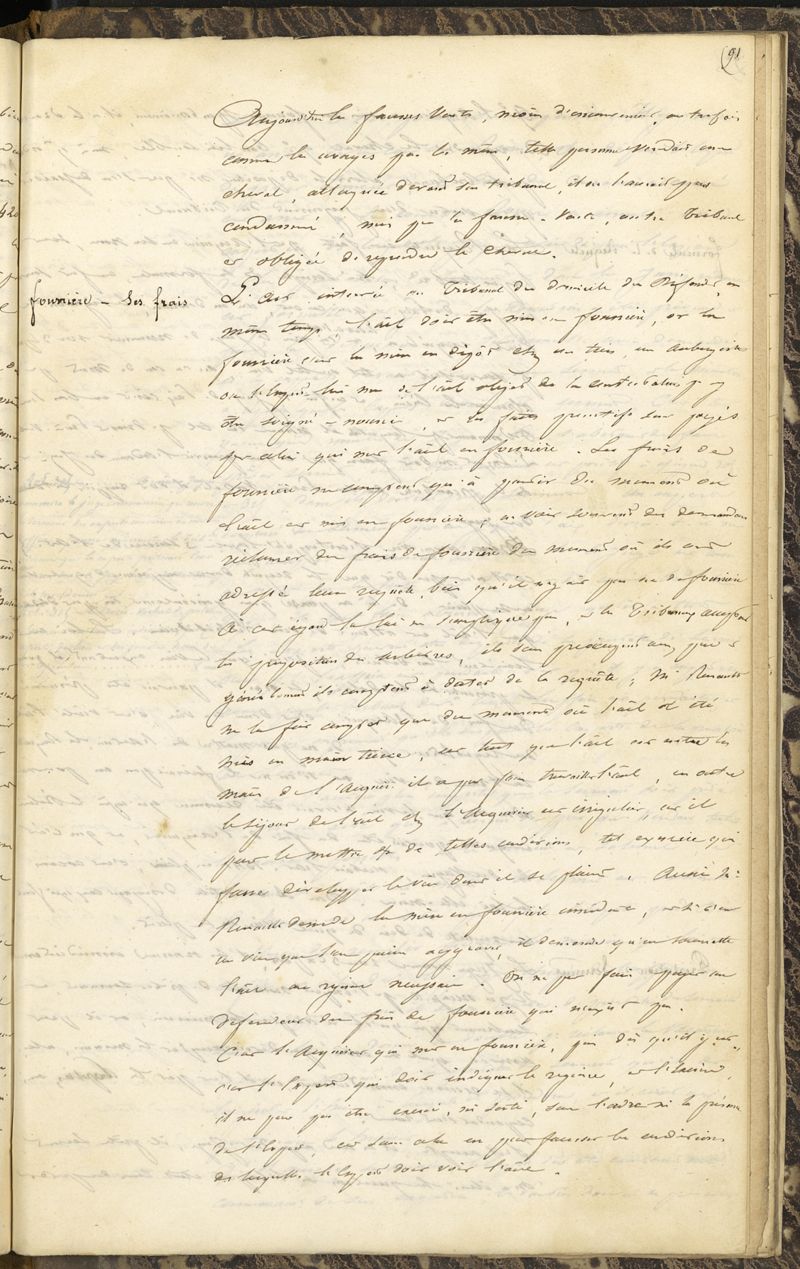 91
Aujourd'hui les fausses ventes, moins d'inconvénients, autrefois
comme les usages par les mêmes, telle personne vendait un
cheval, attaquée devant son tribunal, il ne l'aurait pas
condamné, mais par la fausse vente, autre Tribunal
et obligée de reprendre le cheval.
fourrière – Ses frais
L'aur intenté au Tribunal du domicile du Défendeur, en
même temps, l'aâl doit être mis en fourrière, or la
fourrière c'est la mise en dépôt chez un tiers, un aubergiste
ou l'Expert lui même de l'aâl objet de la contestation pr y
être soigné – nourri, et les frais sont payés
par celui qui met l'aâl en fourrière. Les frais de
fourrière ne comptent qu'à partir du moment où
l'aâl est mis en fourrière, on voit souvent des demandeurs
réclamer des frais de fourrière du moment où ils ont
adressé leur requête, bien qu'il n'y ait pas eu de fourrière
À cet égard la loi ne s'explique pas, et les Tribunaux acceptent
les propositions des arbitres,
ils comptent à dater de la requête; Mr Renault
ne les fait compter que du moment où l'aâl a été
mis en main tierce, car tant que l'aâl est entre les
mains de l'Acquér. il a pu faire travailler l'aâl, en outre
le séjour de l'aâl chez l'Acquéreur est irrégulier, car il
peut le mettre de telles conditions, tel exercice qui
fasse développer le vice dont il se plaint. Aussi Mr
Renault demande la mise en fourrière immédiate, et si c'est
un vice que l'on puisse aggraver, il demande qu'on soumette
l'aâl au régime nécessaire. On ne peut faire payer au
défendeur des frais de fourrière qui n'existent pas.
C'est l'Acquéreur qui met en fourrière,
c'est l'Expert qui doit indiquer le régime, et l'exercice,
il ne peut pas être exercé, ni sorti, sans l'ordre ni la présence
de l'Expert, car sans cela on peut fausser les conditions
dans lesquelles l'Expert doit voir l'aâl.